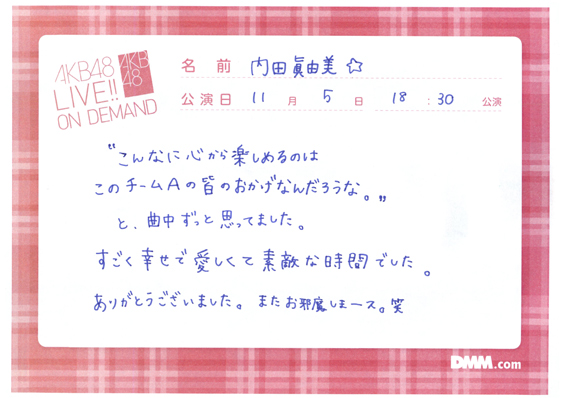 AKB48
LIVE!!
ON DEMAND
AKB
48
名 前 内田眞由美☆
公演日 11 月 5 日 18 : 30 公演
"こんなに心から楽しめるのは
このチームAの皆のおかげなんだろうな。"
と、曲中ずっと思ってました。
すごく幸せで愛しくて素敵な時間でした。
ありがとうございました。またお邪魔しまース。笑
DMM.com